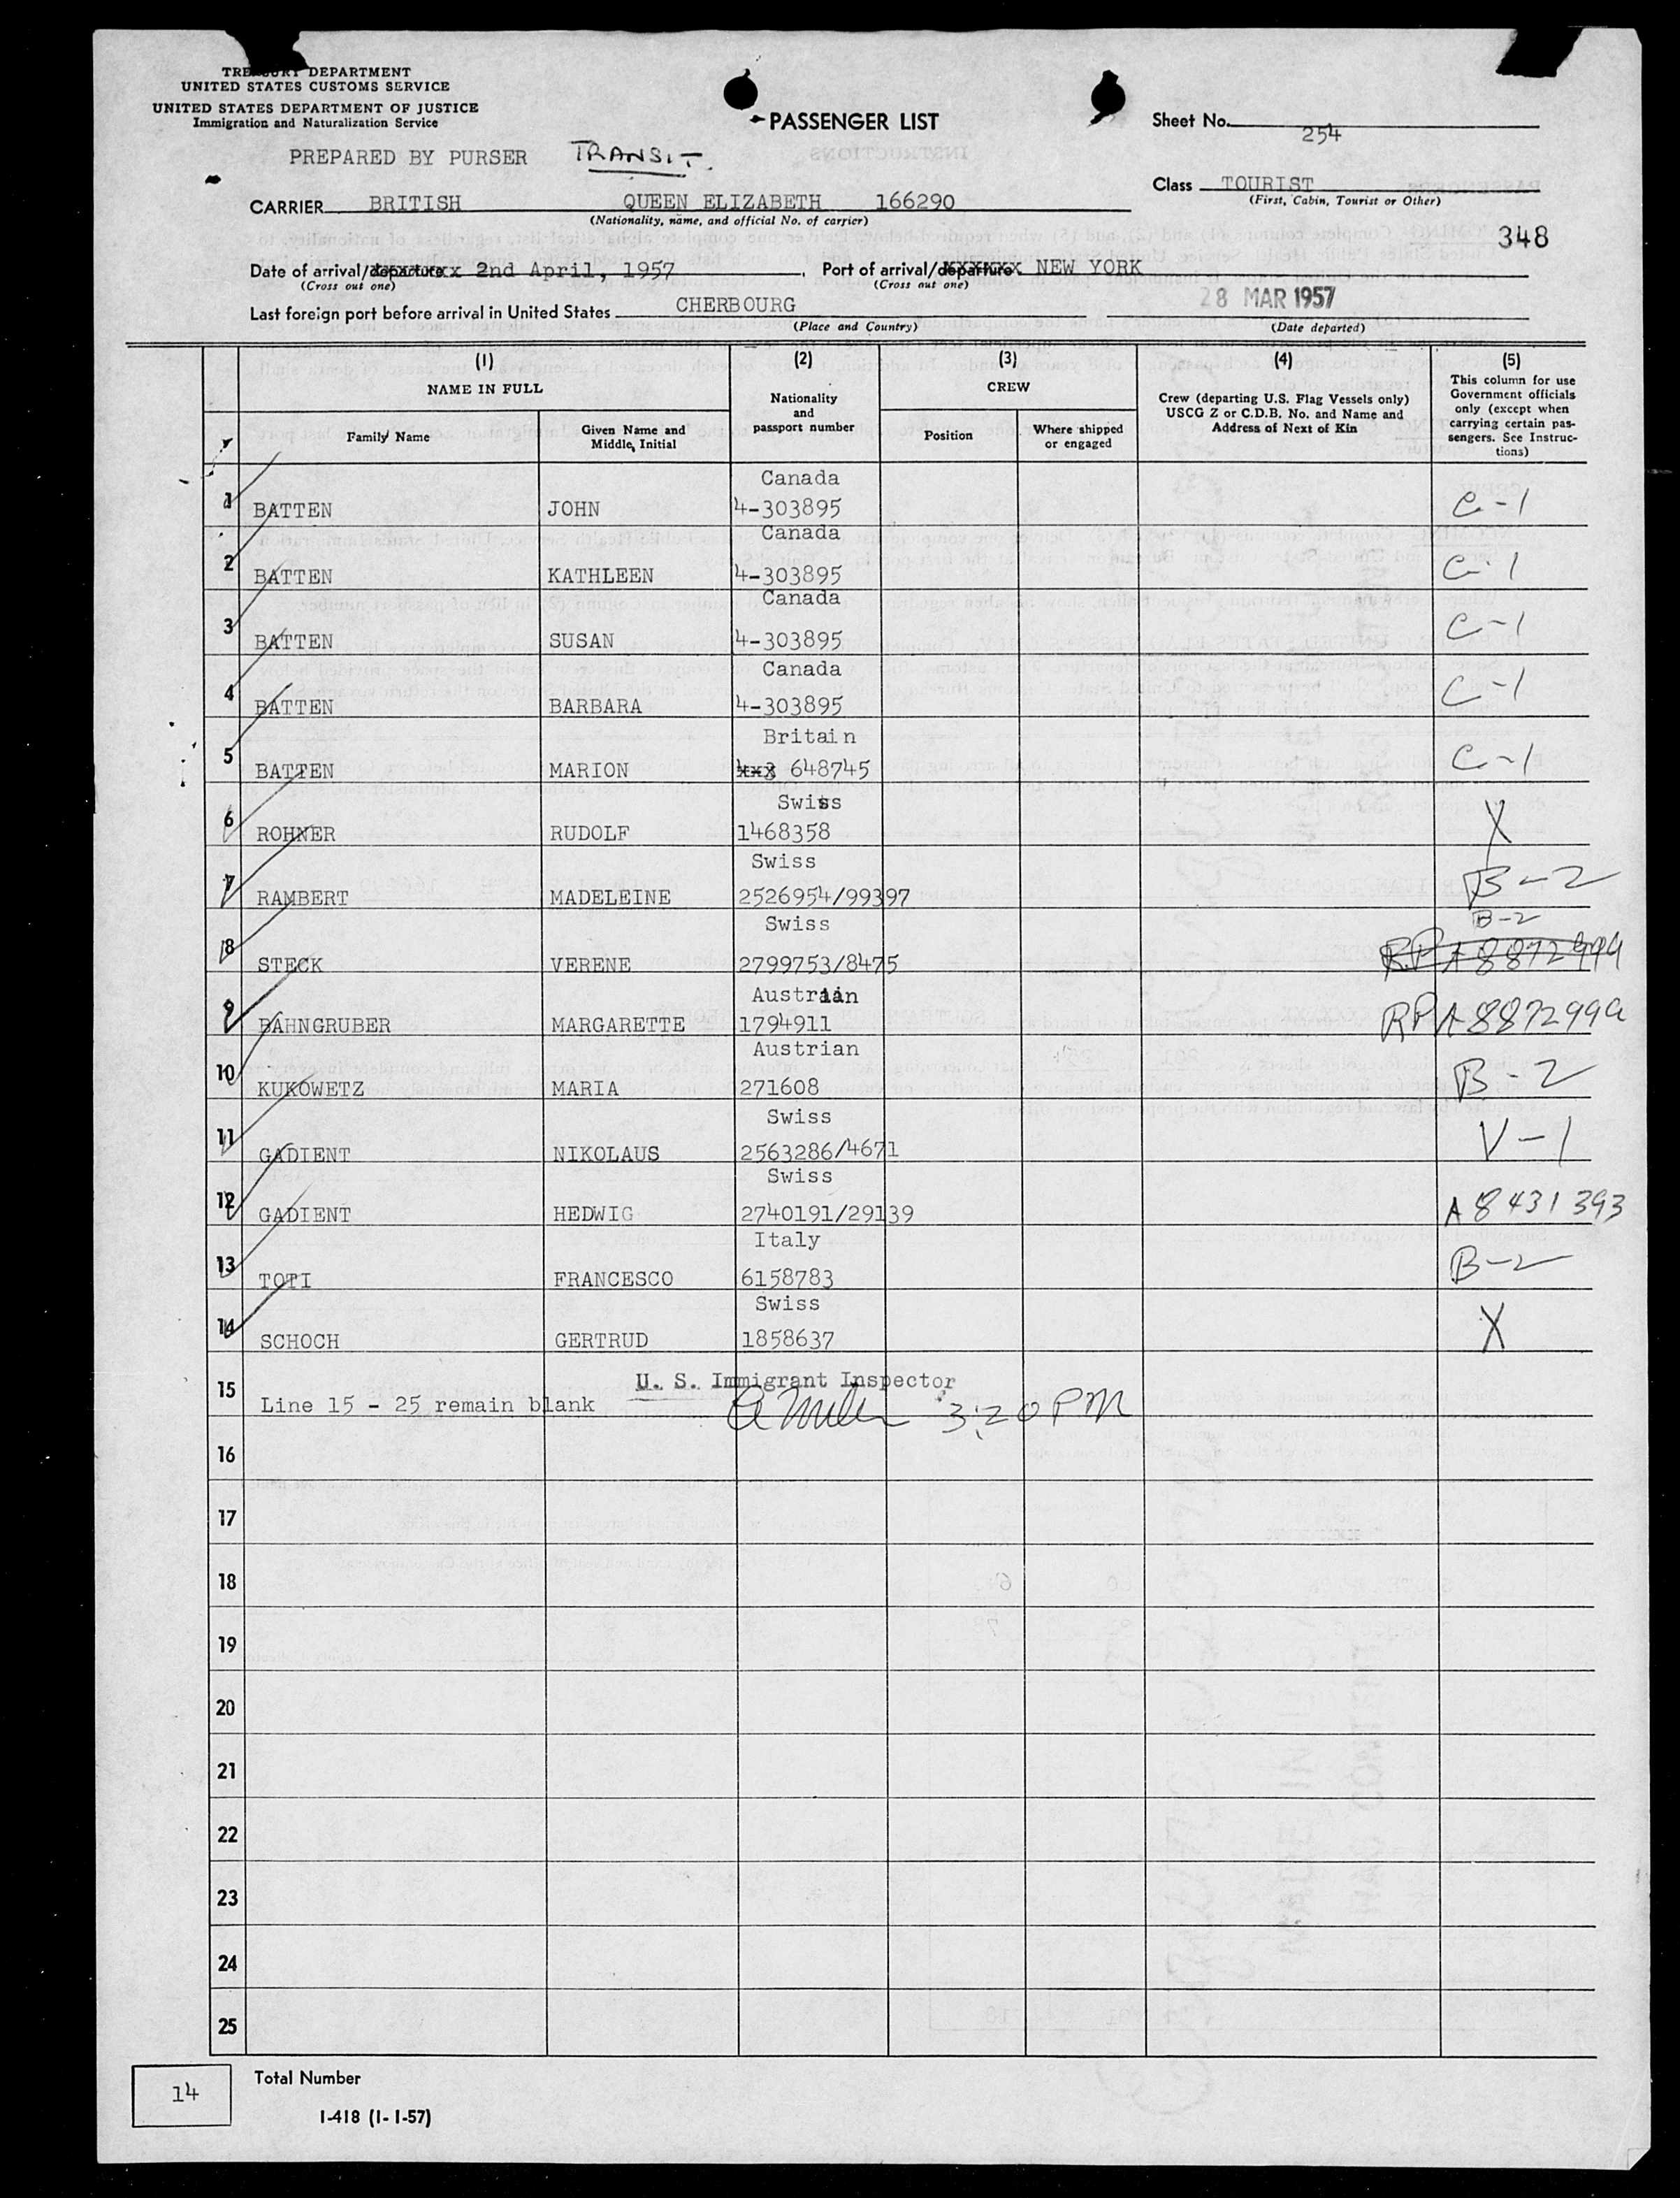 TREASURY DEPARTMENT
UNITED STATES CUSTOMS SERVICE
UNITED STATES DEPARTMENT OF JUSTICE
Immigration and Naturalization Service
PASSENGER LIST
Sheet No. 254
PREPARED BY PURSER TRANSIT.
Class TOURIST
(First, Cabin, Tourist or Other)
CARRIER BRITISH QUEEN ELIZABETH 166290
(Nationality, name, and official No. of carrier)
348
Date of arrival/departure 2nd April, 1957. Port of arrival/departure NEW YORK
(Cross out one) (Cross out one)
Last foreign port before arrival in United States CHERBOURG 28 MAR 1957
(Place and Country) (Date departed)
(1) (2) (3) (4) (5)
NAME IN FULL
Family Name
Given Name and Middle, Initial
Nationality and passport number
CREW
Position
Where shipped or engaged
Crew (departing U.S. Flag Vessels only) USCG Z or C.D.B. No. and Name and Address of Next of Kin
This column for use Government officials only (except when carrying certain passengers. See Instructions)
Canada
1 BATTEN JOHN 4-303895 C-1
Canada
2 BATTEN KATHLEEN 4-303895 C-1
Canada
3 BATTEN SUSAN 4-303895 C-1
Canada
4 BATTEN BARBARA 4-303895 C-1
Britain
5 BATTEN MARION 648745 C-1
Swiss
6 ROHNER RUDOLF 1468358 X
Swiss
7 RAMBERT MADELEINE 2526954/99397 B-2
Swiss B-2
8 STECK VERENE 2799753/8475 RPA8872999
Austrian
9 BAHNGRUBER MARGARETTE 1794911 RPA8872999
Austrian
10 KUKOWETZ MARIA 271608 B-2
Swiss
11 GADIENT NIKOLAUS 2563286/4671 V-1
Swiss
12 GADIENT HEDWIG 2740191/29139 A8431393
Italy
13 TOTI FRANCESCO 6158783 B-2
Swiss
14 SCHOCH GERTRUD 1858637 X
U. S. Immigrant Inspector
15 Line 15 - 25 remain blank 3:20 PM
16
17
18
19
20
21
22
23
24
25
14 Total Number
I-418 (1-1-57)